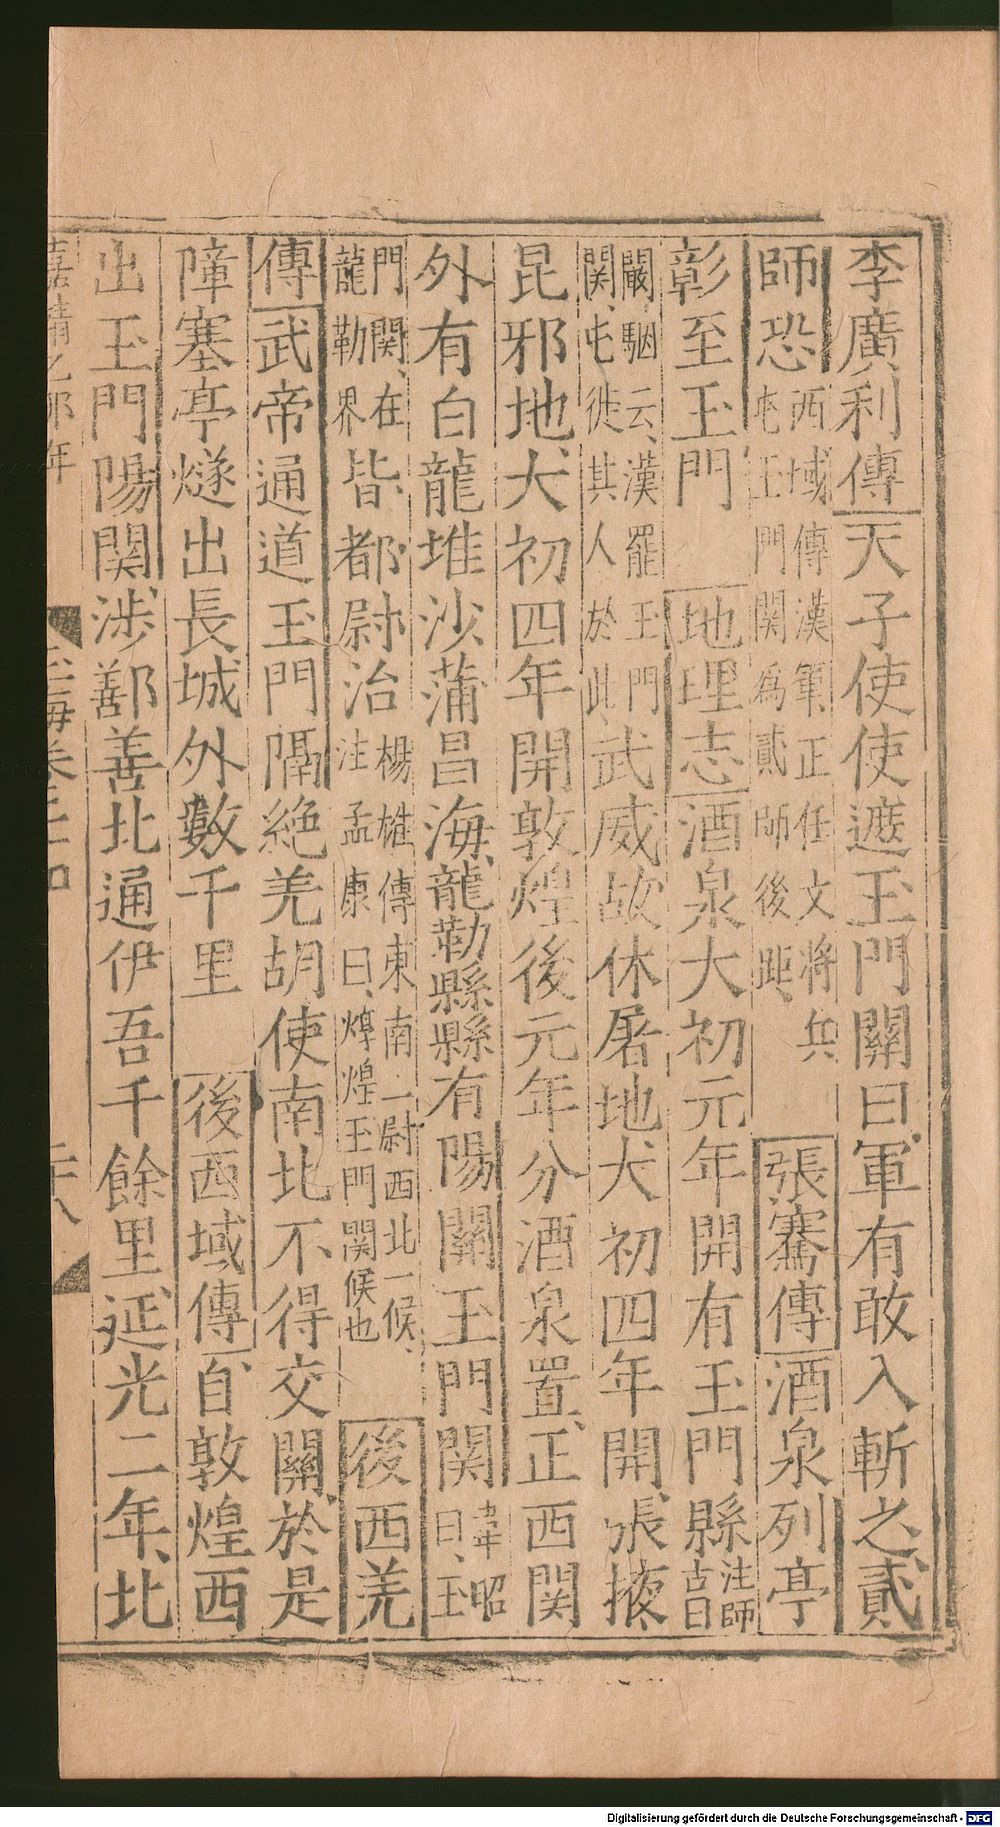 李廣利傳天子使使遮玉門關曰軍有敢入斬之貳
師恐西域傳漢軍正任文將兵屯玉門関爲貳師後距張騫傳酒泉列亭
彰至玉門地理志酒泉大初元年開有玉門縣注師古曰
闞駰云漢罷玉門関屯徙其人於此武威故休屠地大初四年開張掖
昆邪地大初四年開敦煌後元年分酒泉置正西関
外有白龍堆沙蒲昌海龍勒縣縣有陽關玉門関韋昭曰玉
門関在龍勒界皆都尉治楊雄傳東南一尉西北一候注孟康曰燉煌玉門関候也後西羌
傳武帝通道玉門隔絶羌胡使南北不得交關於是
障塞亭燧出長城外數千里後西域傳自敦煌西
出玉門陽関涉鄯善北通伊吾千餘里延光二年北
嘉靖乙卯年
玉海卷二十四
二十八
Digitalisierung gefördert durch die Deutsche Forschungsgemeinschaft - DFG